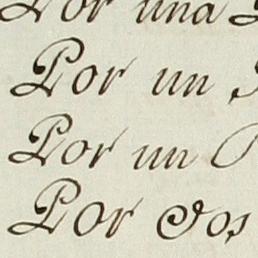 Por una
Por un
Por un
Por dos